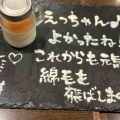 えっちゃん♪
よかったね!
これからも元気
綿毛を
飛ばしま